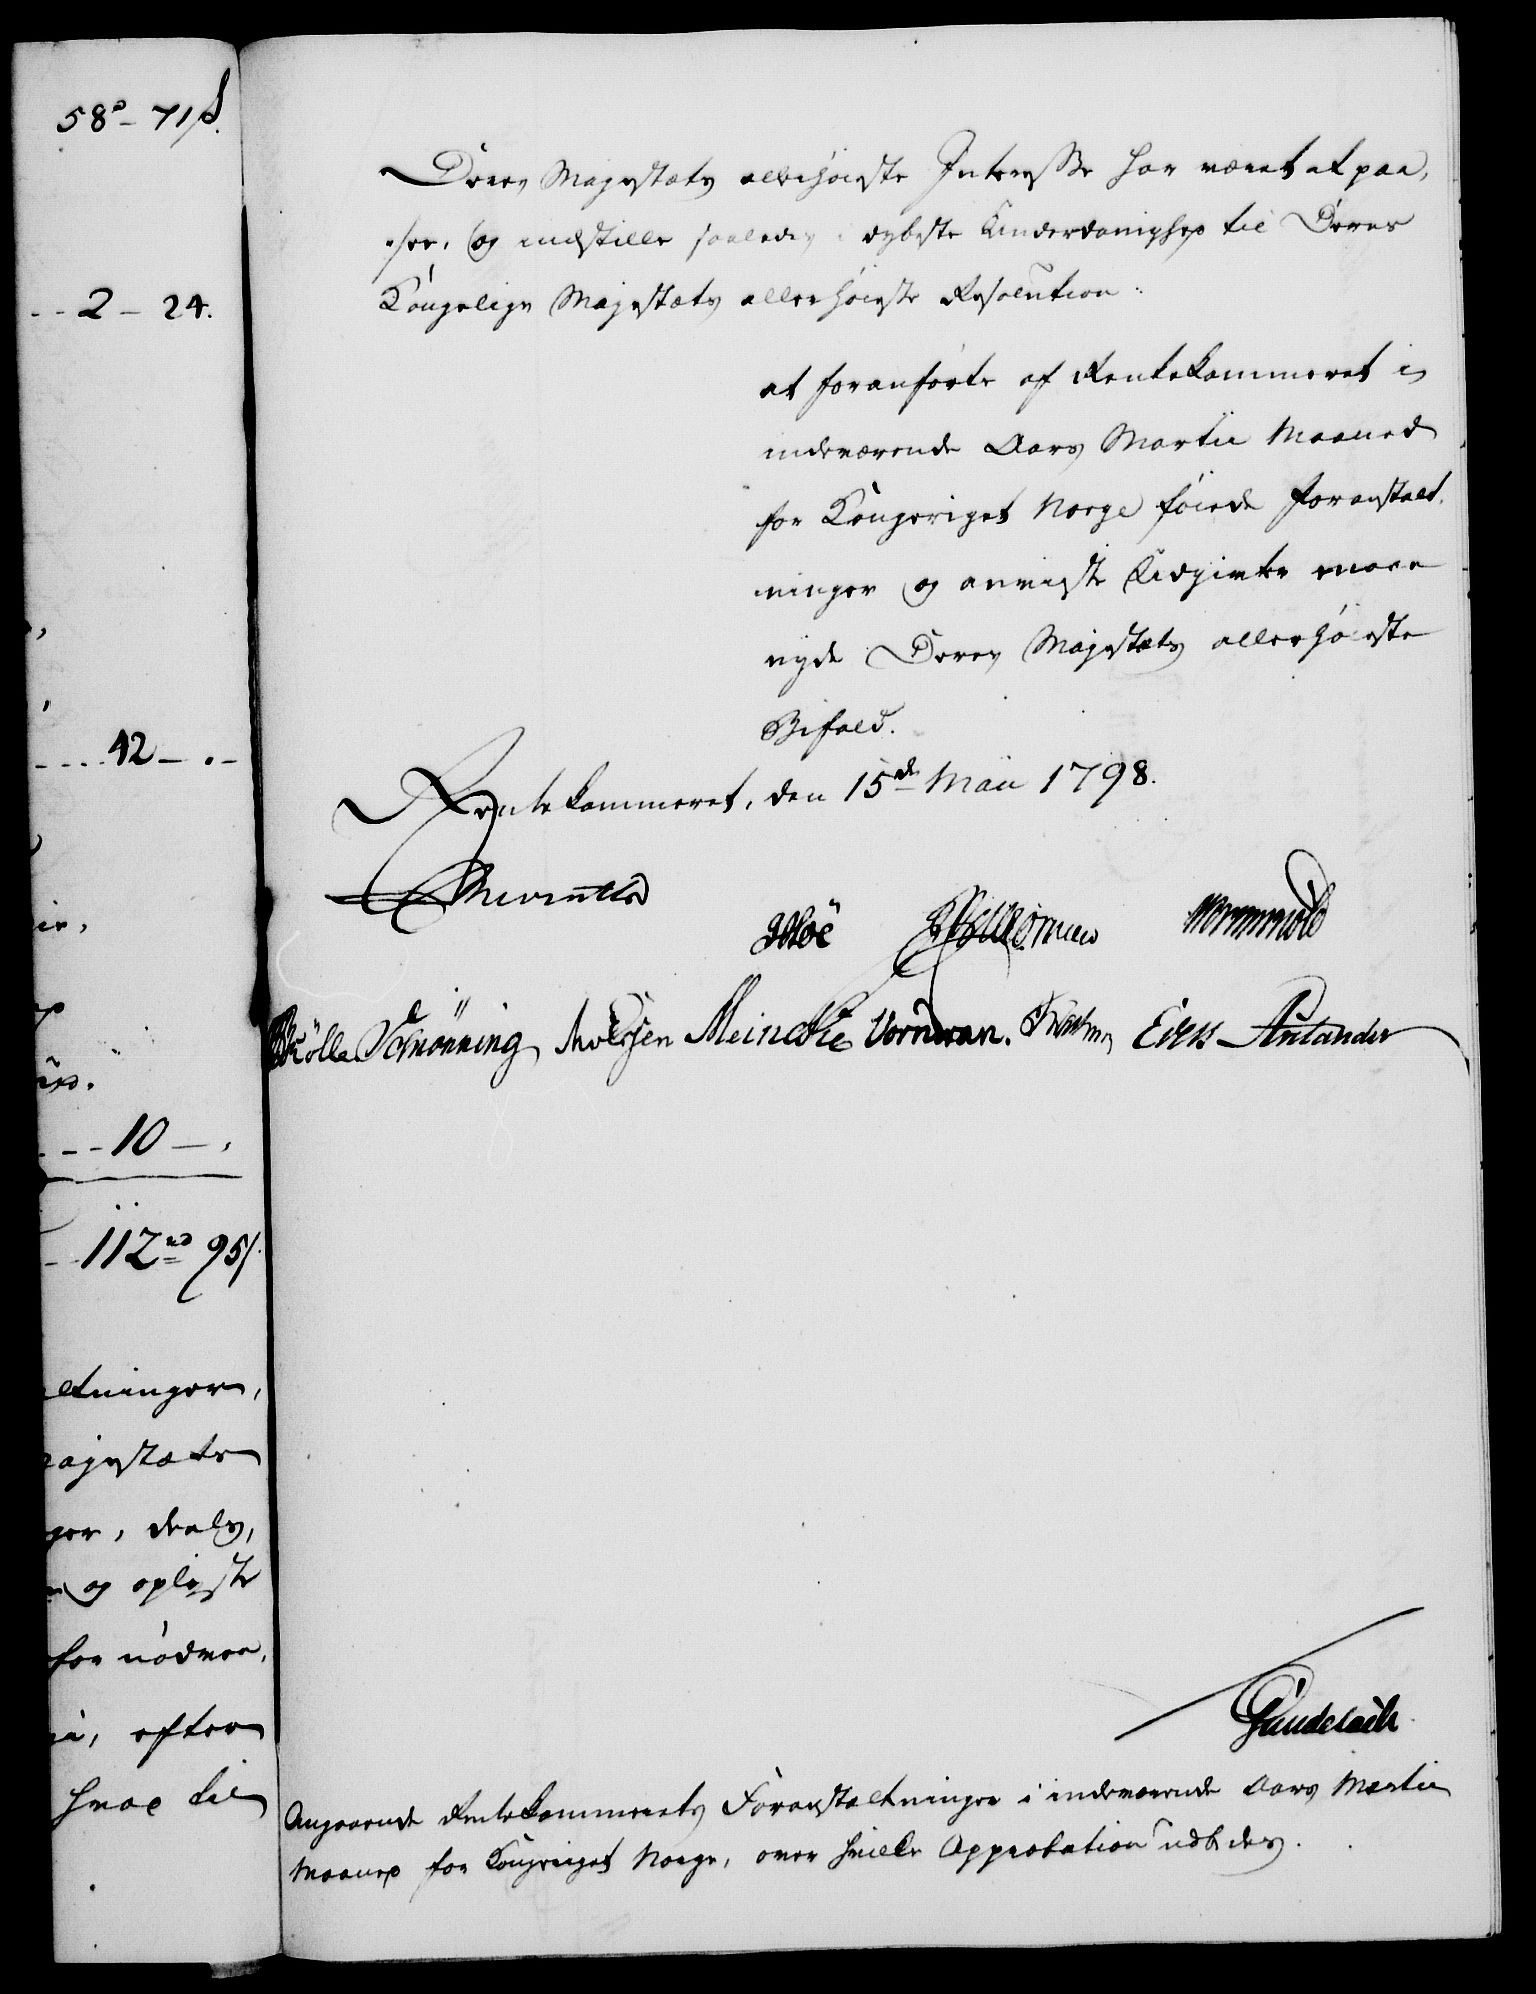 58 - 71 ß.
- - 2 - 24.
- - - 42 - . -
- - - 10 -
- 112 rd 95 ß.
ltninger,
ajestæts
ger, deels,
og oplyste
for nödven,
efter
hvad til
Deres Majestæts allerhöieste Interesse har været at paa,
see, og indstille saaledes i dybeste Underdanighed til Deres
Kongelige Majestæts allerhöieste Resolution:
at foranförte af Rentekammeret i
indeværende Aars Martii Maaned
for Kongeriget Norge föiede Foranstalt,
ninger og anviste Udgivter maae
nyde Deres Majestæts allerhöieste
Bifald.
Rentekammeret, den 15de Maii 1798.
Reventlo
Wormskiold
Schönning Meincke Vorndran. Evers Anlander
Gundelach
Angaaende Rentekammerets Foranstaltninger i indeværende Aars Martii
Maaned for Kongeriget Norge, over hvilke Approbation udbedes.